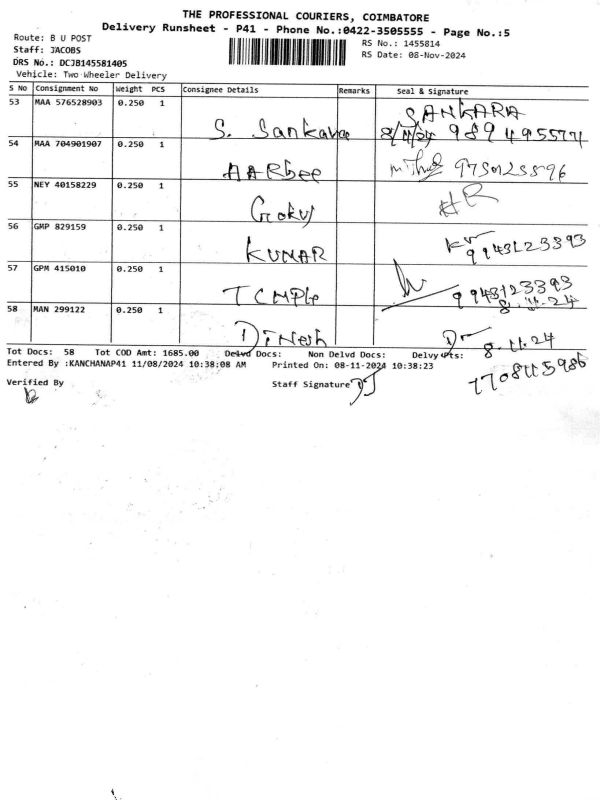 THE PROFESSIONAL COURIERS, COIMBATORE
Delivery Runsheet - P41 - Phone No.:0422-3505555 - Page No.:5
Route: B U POST
RS No.: 1455814
Staff: JACOBS
RS Date: 08-Nov-2024
DRS No.: DCJB145581405
Vehicle: Two Wheeler Delivery
S No Consignment No Weight PCS Consignee Details Remarks Seal & signature
53 MAA 576528903 0.250 1 S. Sankara SANKARA
8/11/24
54 MAA 704901907 0.250 1 AARbee
55 NEY 40158229 0.250 1 Gokul
56 GMP 829159 0.250 1 KUMAR
9943123393
57 GPM 415010 0.250 1
9943123393
8.11.24
58 MAN 299122 0.250 1 Dinesh
8.11.24
7708115986
Tot Docs: 58 Tot COD Amt: 1685.00 Delvd Docs: Non Delvd Docs: Delvy Pts:
Entered By :KANCHANAP41 11/08/2024 10:38:08 AM Printed On: 08-11-2024 10:38:23
Verified By Staff Signature